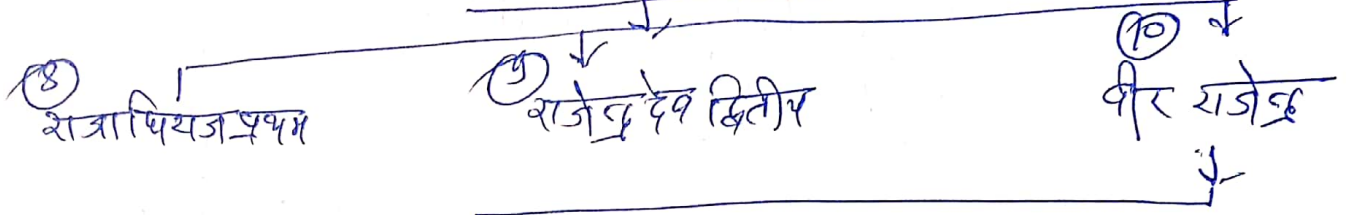 (8) राजाधिराज प्रथम (9) राजेन्द्र देव द्वितीय (10) वीर राजेन्द्र